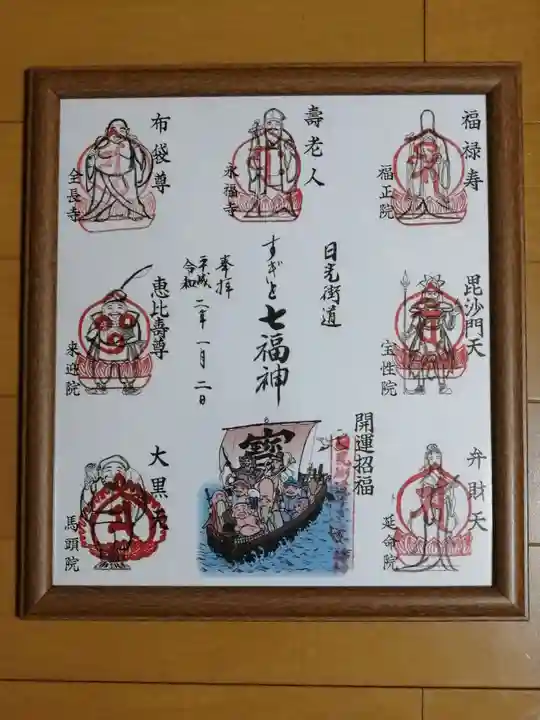 福禄寿
福正院
壽老人
永福寺
布袋尊
全長寺
毘沙門天
宝性院
日光街道
すぎと七福神
奉拝
平成
令和
二年一月二日
恵比壽尊
来迎院
弁財天
延命院
開運招福
寳
大黒天
馬頭院